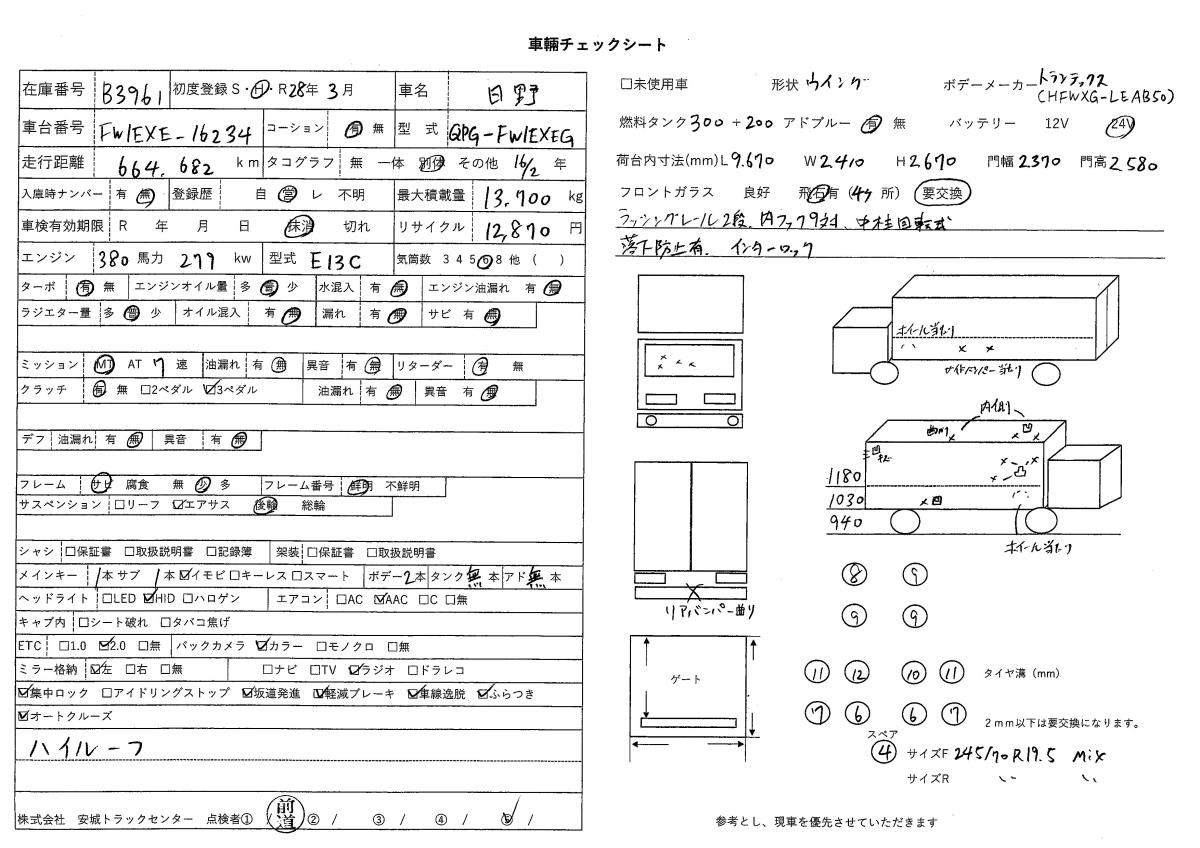 車輛チェックシート
在庫番号 B3961 初度登録 S・H・R 28年 3月 車名 日野
車台番号 FW1EXE-16234 コーション 有 無 型式 QPG-FW1EXEG
走行距離 664,682 km タコグラフ 無 一体 別体 その他 16/2 年
入庫時ナンバー 有 無 登録歴 自 営 レ 不明 最大積載量 13,700 kg
車検有効期限 R 年 月 日 抹消 切れ リサイクル 12,870 円
エンジン 380 馬力 279 kw 型式 E13C 気筒数 3 4 5 6 8 他 ( )
ターボ 有 無 エンジンオイル量 多 普 少 水混入 有 無 エンジン油漏れ 有 無
ラジエター量 多 普 少 オイル混入 有 無 漏れ 有 無 サビ 有 無
ミッション MT AT 7 速 油漏れ 有 無 異音 有 無 リターダー 有 無
クラッチ 有 無 □2ペダル ☑3ペダル 油漏れ 有 無 異音 有 無
デフ 油漏れ 有 無 異音 有 無
フレーム サビ 腐食 無 少 多 フレーム番号 鮮明 不鮮明
サスペンション □リーフ ☑エアサス 後輪 総輪
シャシ □保証書 □取扱説明書 □記録簿 架装 □保証書 □取扱説明書
メインキー 1本 サブ 1本 ☑イモビ □キーレス □スマート ボデー 2本 タンク 無 本 アド 無 本
ヘッドライト □LED ☑HID □ハロゲン エアコン □AC ☑AAC □C □無
キャブ内 □シート破れ □タバコ焦げ
ETC □1.0 ☑2.0 □無 バックカメラ ☑カラー □モノクロ □無
ミラー格納 ☑左 □右 □無 □ナビ □TV ☑ラジオ □ドラレコ
☑集中ロック □アイドリングストップ ☑坂道発進 ☑軽減ブレーキ ☑車線逸脱 ☑ふらつき
☑オートクルーズ
ハイルーフ
株式会社 安城トラックセンター 点検者① / 前道 ② / ③ / ④ / ⑤ /
□未使用車 形状 ウイング ボデーメーカー トランテックス
(HFWXG-LEAB50)
燃料タンク 300 + 200 アドブルー 有 無 バッテリー 12V 24V
荷台内寸法(mm) L 9.670 W 2410 H 2670 門幅 2370 門高 2580
フロントガラス 良好 飛石有 (4ヶ所) 要交換
ラッシングレール2段、内フック9対、中柱回転式
落下防止有、インターロック
ホイール当たり
サイドバンパー当たり
内側
曲がり 凹
凹
1180
1030 凹
940
ホイール当たり
リアバンパー曲り
⑧ ⑨
⑨ ⑨
ゲート
⑪ ⑫ ⑩ ⑪ タイヤ溝(mm)
⑦ ⑥ ⑥ ⑦ 2mm以下は要交換になります。
スペア
④ サイズF 245/70R19.5 Mix
サイズR 〃 〃
参考とし、現車を優先させていただきます